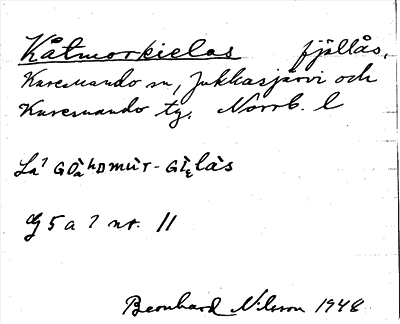 Kåtmorkielas fjällås,
Karesuando sn, Jukkasjärvi och
Karesuando tg, Norrb. l
La?
G 5 a ? nr. 11
Bernhard Nilsson 1948